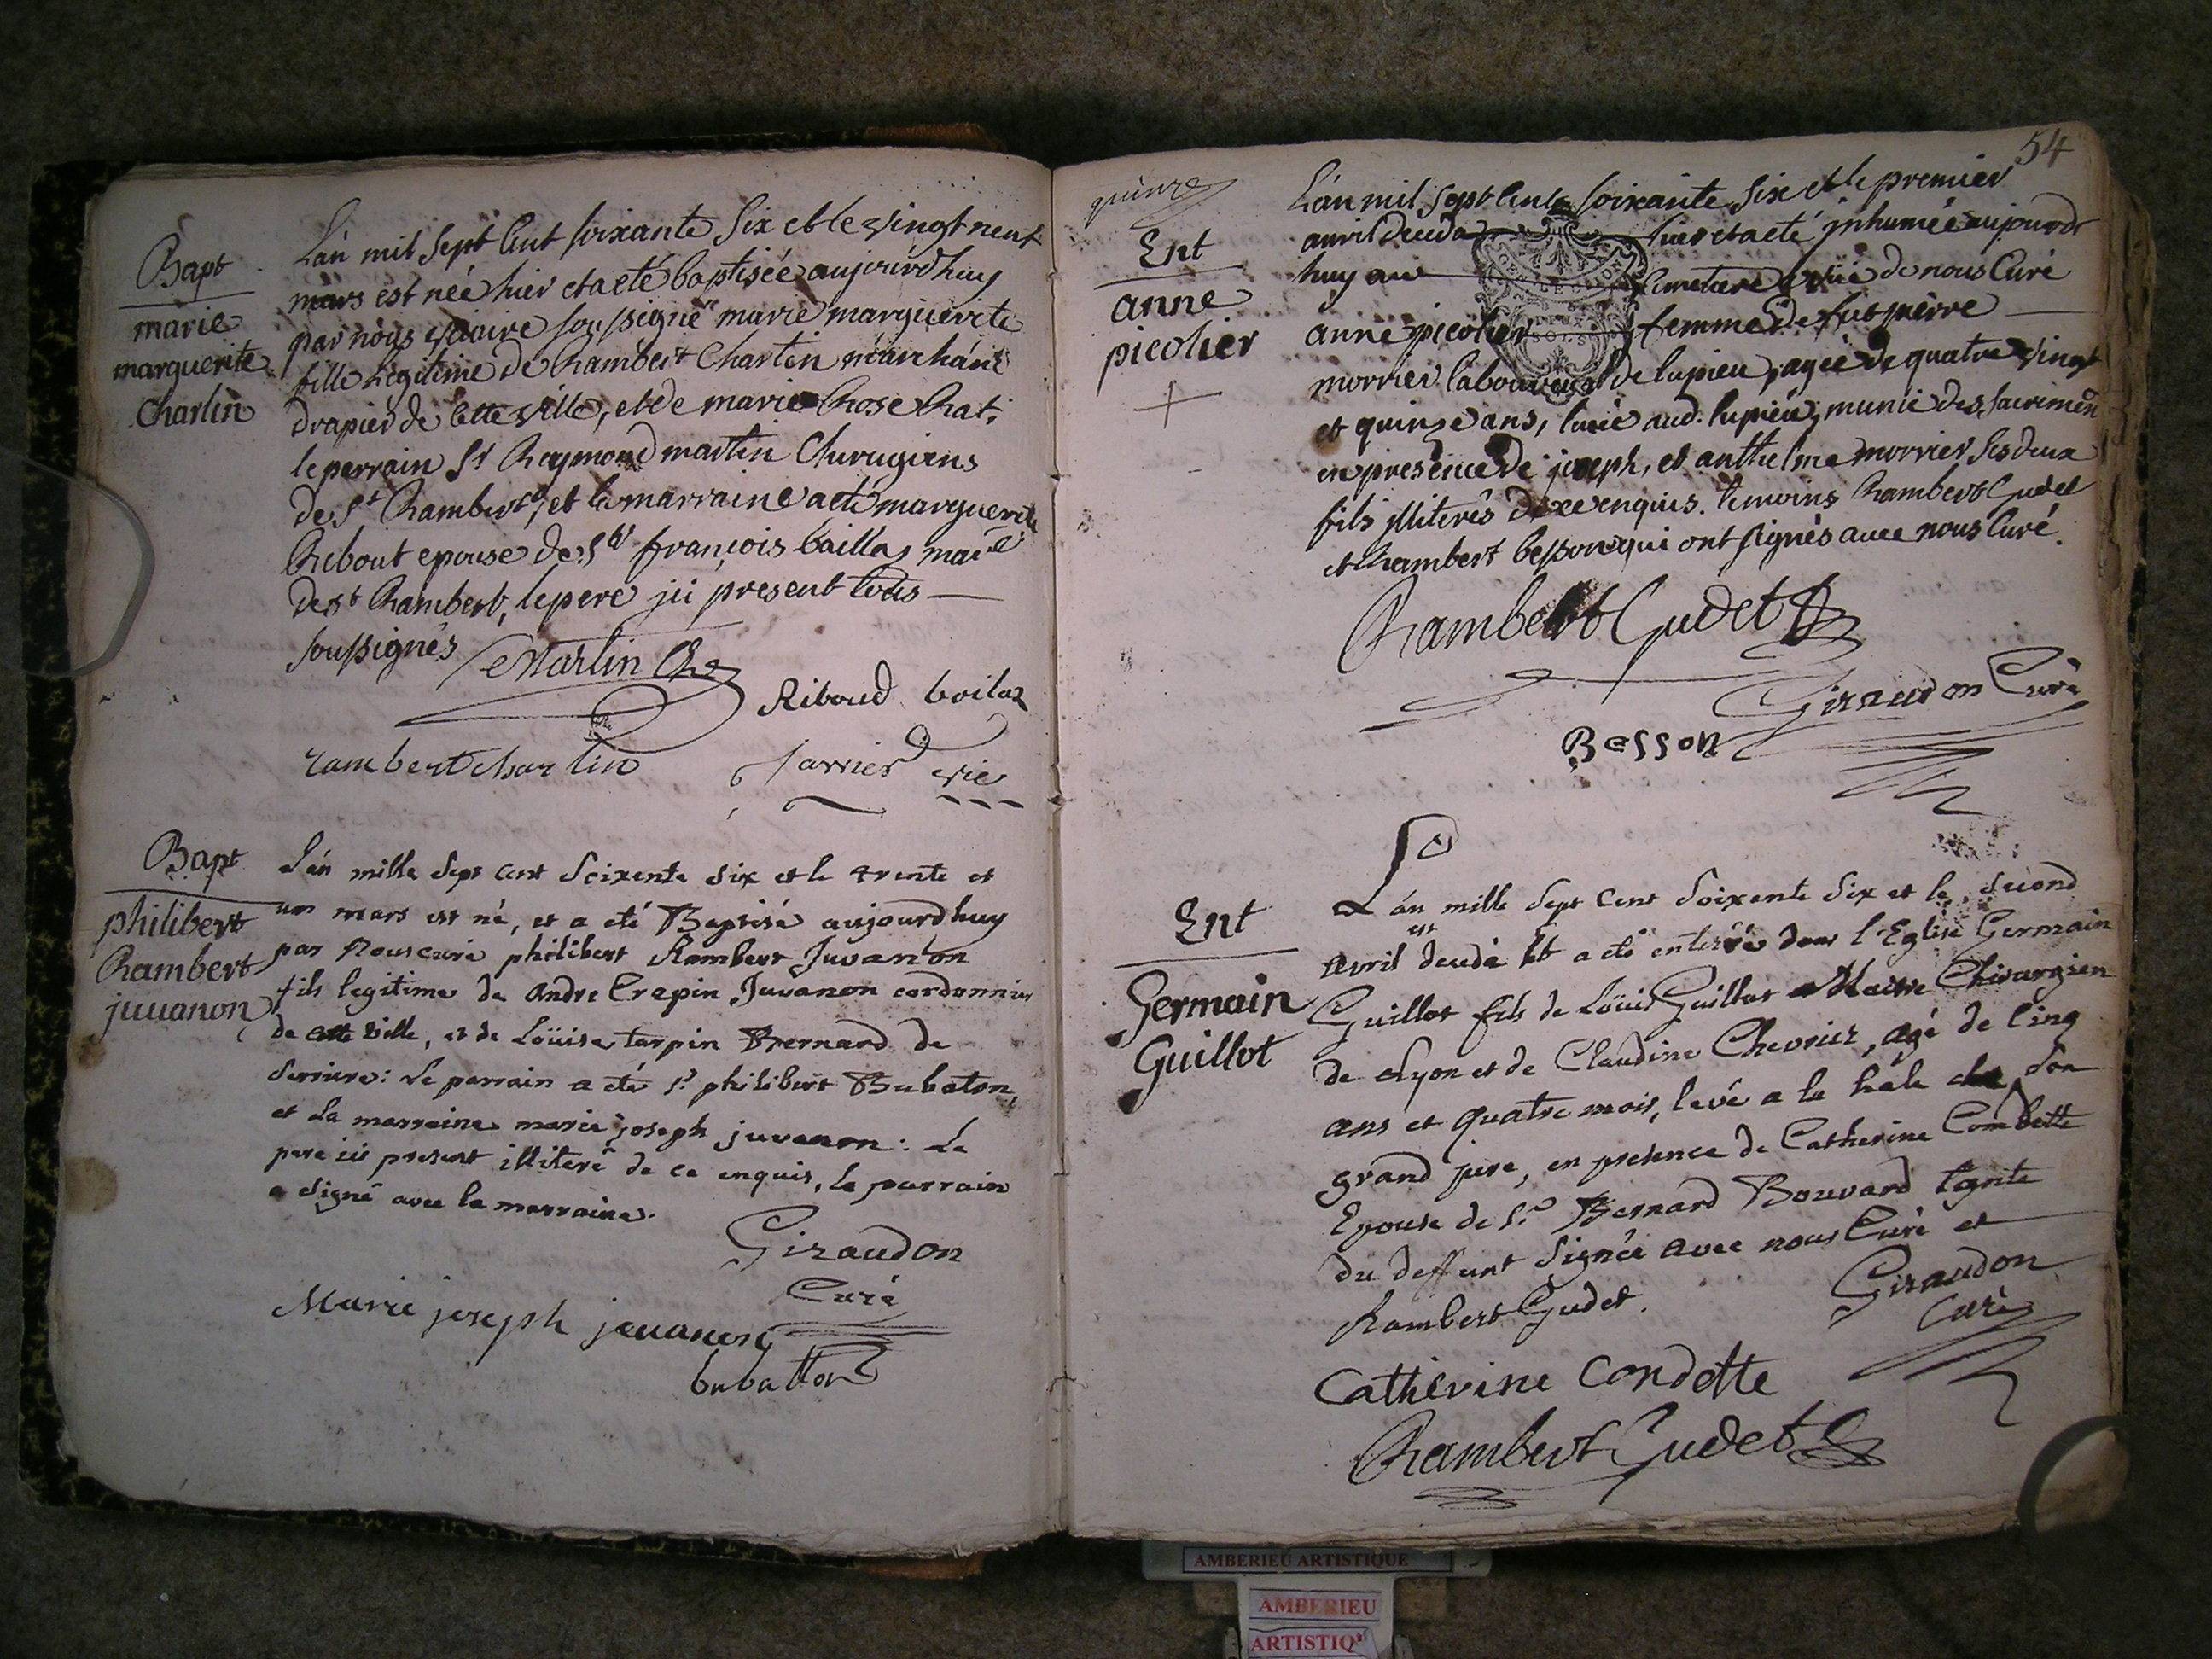 Bapt
marie
marguerite
Charlin
L'an mil sept Cent soixante six et le vingt neuf
mars est née hier et a eté baptisée aujourdhuy
par nous vicaire soussigné marie marguerite
fille Legitime de Rambert Charlin marchand
drapier de Cette ville, et de marie Rose Rat;
le perrain Sr Raymond martin Chirugiens
de St Rambert, et la marraine a eté marguerite
Ribout epouse de Sr françois bailla, mard
de st Rambert, le pere ici present tous
soussignés
Riboud boilaz
rambert charlin
Jarrier vic
Bapt
philibert
Rambert
juuanon
L'an mille sept cent soixente six et le trente et
un mars est né, et a eté Baptisé aujourdhuy
par Nous curé philibert Rambert Juvanon
fils legitime de andre Crepin Juvanon cordonnier
de cette ville, et de Loüise tarpin Bernard de
Serriere: Le parrain a eté sr philibert Bubaton,
et La marraine marie joseph juvanon: Le
pere ici present illiteré de ce enquis, le parrain
a signé avec la marraine.
Giraudon
Curé
Marie joseph jeuanon
bubatton
54
quinze
Ent
anne
picolier
L'an mil sept Cent soixante six et le premier
auril deceda hier et a eté jnhumée aujourd
huy au Cimetiere de nous Curé
anne picolier femme de fut pierre
morrier laboureur de lupieu, agée de quatre vingt
et quinze ans, levée aud. lupieu, munie des sacremen
en presence de joseph, et anthelme morrier ses deux
fils jlliterés de ce enquis. temoins Rambert Gudet
et Rambert besson qui ont signés avec nous Curé.
Rambert Gudet
Giraudon Curé
Besson
Ent
Germain
Guillot
L'an mille Sept Cent Soixente Six et le second
est
avril decedé et a eté enterré dans l'Eglise Germain
Guillot fils de Loüis Guillot Maitre Chirurgien
de Lyon et de Claudine Chevrier, agé de Cinq
ans et quatre mois, levé a la hâle de son
grand pere, en presence de Catherine Combette
Epouse de Sr Bernard Bouvard tante
du deffunt Signée avec nous Curé et
Rambert Gudet.
Giraudon
Curé
Catherine Condette
Rambert Gudet
AMBERIEU ARTISTIQUE
AMBERIEU
ARTISTIQ